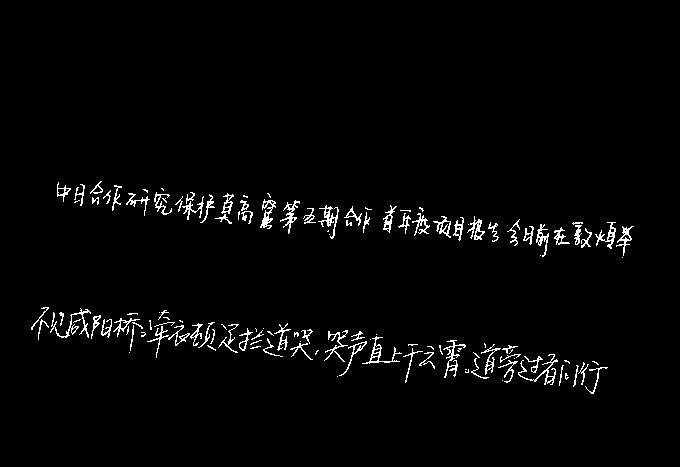 中日合作研究保护莫高窟第五期合作首年度项目报告会日前在敦煌举
不见咸阳桥;牵衣顿足拦道哭,哭声直上干云霄。道旁过者问行